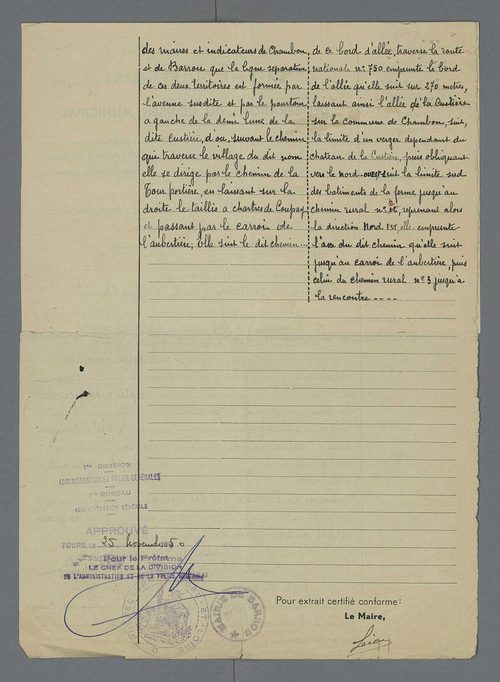 des maires et indicateurs de Chambon,
et de Barrou que la ligne séparative
de ces deux territoires est formée par
l'avenue susdite et par le pourtour
a gauche de la demi lune de la
dite Custière, d'ou, suivant le chemin
qui traverse le village du dit nom
elle se dirige par le chemin de la
Tour portière, en laissant sur la
droite le taillis a chartres de Coupay
et passant par le carroir de
l'aubertière; Elle suit le dit chemin...
de ce bord d'allée, traverse la route
nationale n° 750 emprunte le bord
de l'allée qu'elle suit sur 270 mètres,
laissant ainsi l'allée de la Custière
sur la commune de Chambon, suit,
la limite d'un verger dépendant du
chateau de la Custière, puis obliquant
vers le nord-ouest suit la limite sud
des batiments de la ferme jusqu'au
chemin rural n°, reprenant alors
la direction Nord Est, elle emprunte
l'axe du dit chemin qu'elle suit
jusqu'au carroir de l'aubertière, puis
celui du chemin rural n° 3 jusqu'à
la rencontre ----
1re DIVISION
ADMINISTRATION ET POLICE GÉNÉRALES
1er BUREAU
ADMINISTRATION GÉNÉRALE
APPROUVÉ
TOURS, LE 25 novembre 1950
Pour le Préfet
LE CHEF DE LA DIVISION
DE L'ADMINISTRATION ET DE LA POLICE GÉNÉRALES
MAIRIE DE BARROU
Pour extrait certifié conforme:
Le Maire,